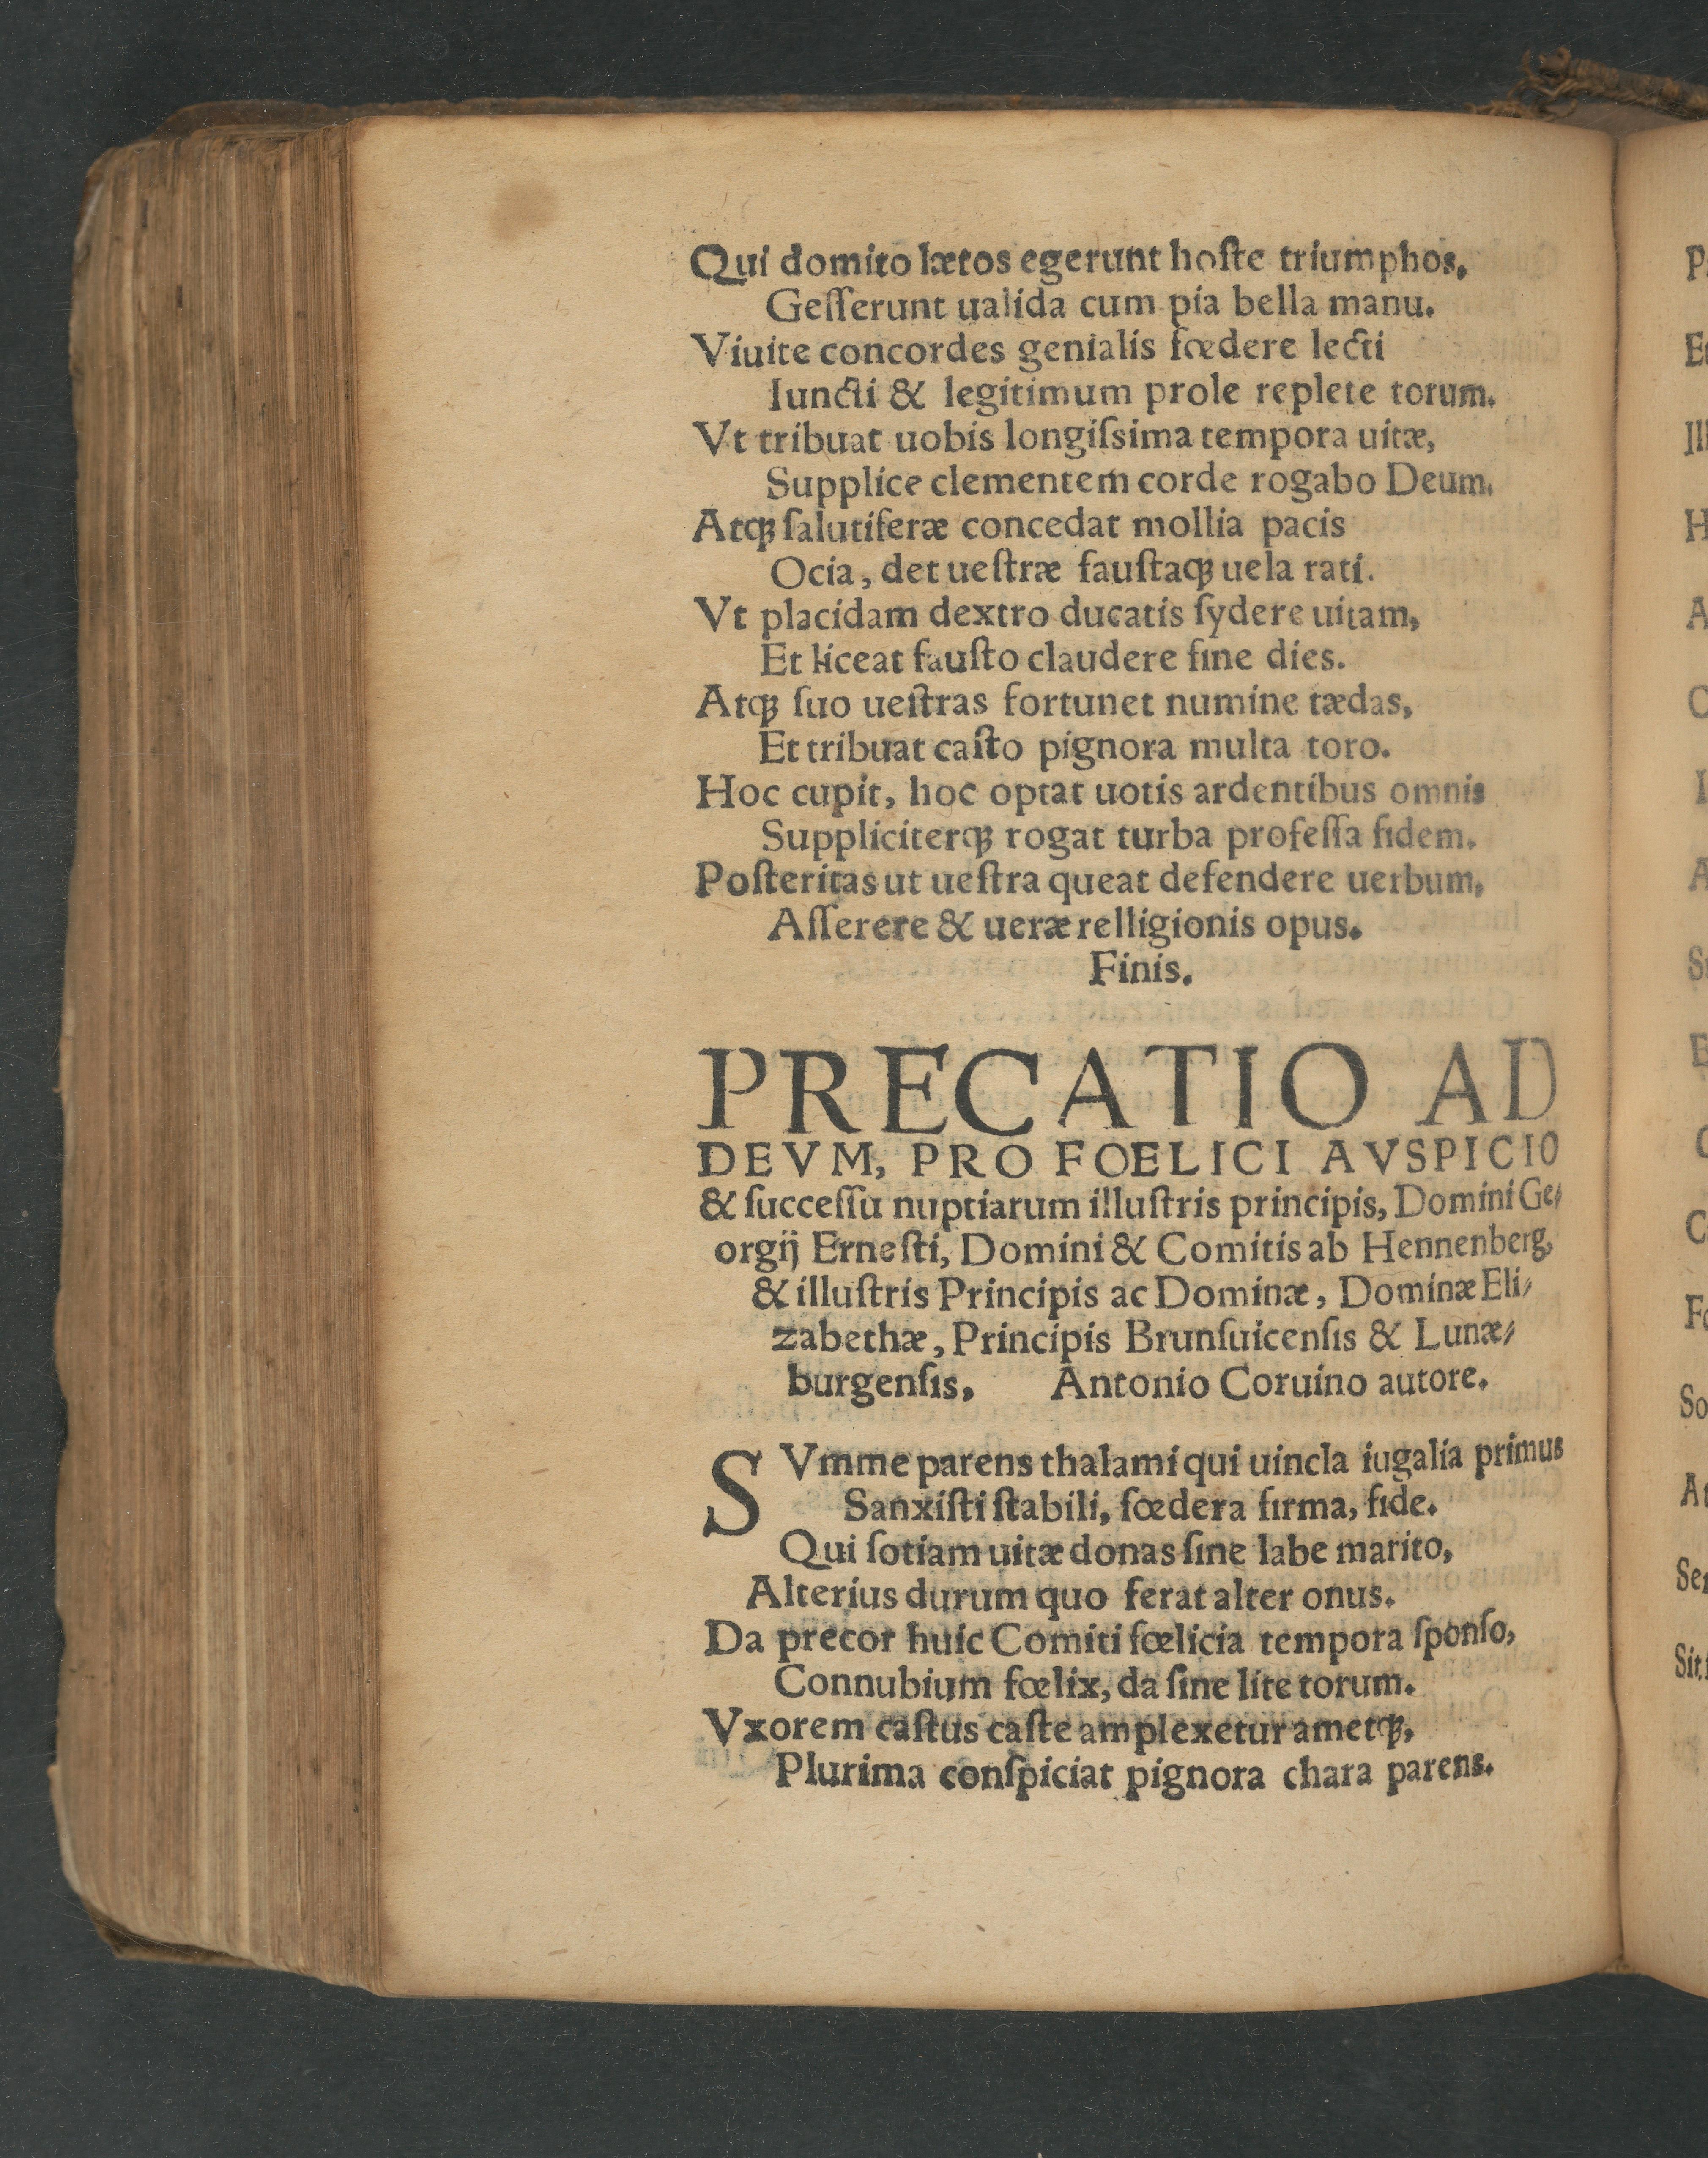 Qui domito lætos egerunt hoſte triumphos,
Geſſerunt ualida cum pia bella manu.
Viuite concordes genialis fœdere lecti
Iuncti & legitimum prole replete torum.
Vt tribuat uobis longiſsima tempora uitæ,
Supplice clementem corde rogabo Deum.
Atqꝫ ſalutiferæ concedat mollia pacis
Ocia, det ueſtræ fauſtaqꝫ uela rati.
Vt placidam dextro ducatis ſydere uitam,
Et liceat fauſto claudere fine dies.
Atqꝫ ſuo ueſtras fortunet numine tædas,
Et tribuat caſto pignora multa toro.
Hoc cupit, hoc optat uotis ardentibus omnis
Suppliciterqꝫ rogat turba profeſſa fidem.
Poſteritas ut ueſtra queat defendere uerbum,
Aſſerere & ueræ relligionis opus.
Finis.
PRECATIO AD
DEVM, PRO FOELICI AVSPICIO
& ſucceſſu nuptiarum illuſtris principis, Domini Ge⸗
orgij Erneſti, Domini & Comitis ab Hennenberg,
& illuſtris Principis ac Dominæ, Dominæ Eli⸗
zabethæ, Principis Brunſuicenſis & Lunæ⸗
burgenſis, Antonio Coruino autore.
SVmme parens thalami qui uincla iugalia primus
Sanxiſti ſtabili, fœdera firma, fide.
Qui ſotiam uitæ donas ſine labe marito,
Alterius durum quo ferat alter onus.
Da precor huic Comiti fœlicia tempora ſponſo,
Connubium fœlix, da ſine lite torum.
Vxorem caſtus caſte amplexetur ametqꝫ,
Plurima conſpiciat pignora chara parens.